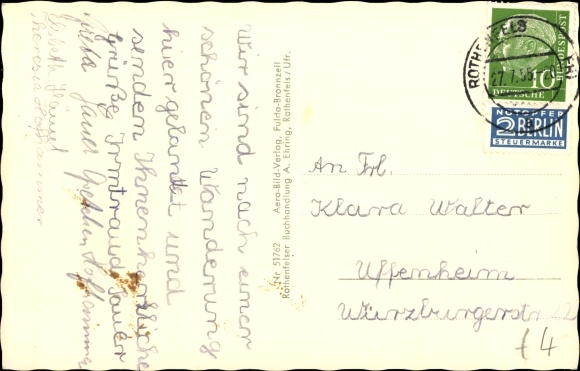 Wir sind nach einer
schönen Wanderung
hier gelandet und
senden Ihnen herzliche
Grüße Irmtraud Sauer
Sauer Gretchen Hofhammer
Elsbeth
Theresia Hofhammer
Nr 51762 Aero-Bild-Verlag, Fulda-Bronnzell
Rothenfelser Buchhandlung A. Ehring, Rothenfels/Ufr.
ROTHENFELS
27.7.55
10
DEUTSCHE
BUNDESPOST
NOTOPFER
2 BERLIN
STEUERMARKE
An Frl.
Klara Walter
Uffenheim
Würzburgerstr
4